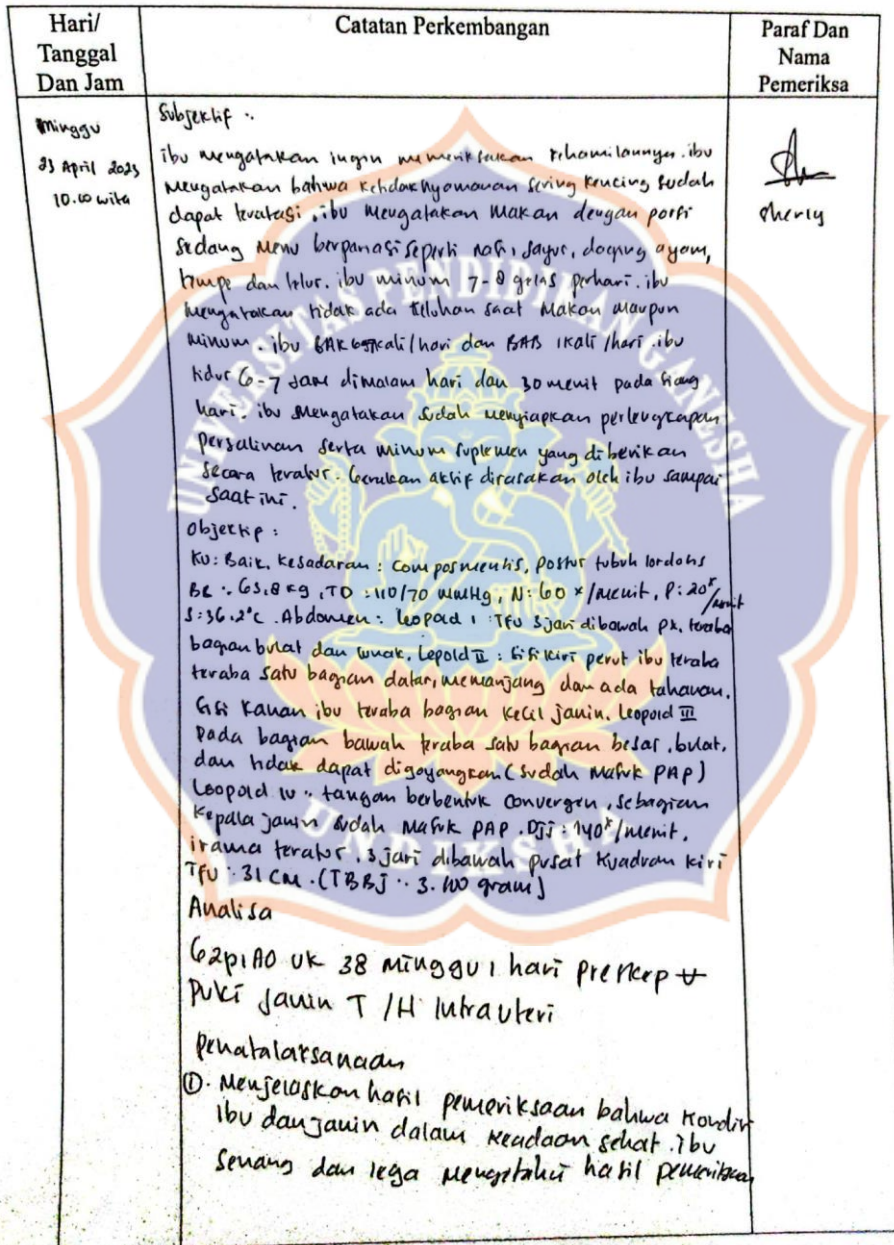 Hari/
Tanggal
Dan Jam
Catatan Perkembangan
Paraf Dan
Nama
Pemeriksa
Minggu
23 April 2023
10.00 wita
Subjektif :
ibu mengatakan ingin memeriksakan kehamilannya. ibu
mengatakan bahwa ketidaknyamanan sering kencing sudah
dapat teratasi, ibu mengatakan makan dengan porsi
sedang menu bervariasi seperti nasi, sayur, daging ayam,
tempe dan telur. ibu minum 7-8 gelas perhari. ibu
mengatakan tidak ada keluhan saat makan maupun
minum. ibu BAK kali/hari dan BAB 1kali/hari. ibu
tidur 6-7 jam dimalam hari dan 30 menit pada siang
hari. ibu mengatakan sudah menyiapkan perlengkapan
persalinan serta minum suplemen yang diberikan
secara teratur. Gerakan aktif dirasakan oleh ibu sampai
saat ini.
Objektip :
KU: Baik, kesadaran : composmentis, postur tubuh lordosis
BB : 63,8 kg, TD : 110/70 mmHg, N: 60 x/menit, P: 20x/menit
S: 36.2°C. Abdomen : Leopold I : TFU 3 jari dibawah px, teraba
bagian bulat dan lunak, Lepold II : sisi kiri perut ibu teraba
teraba satu bagian datar, memanjang dan ada tahanan.
Sisi kanan ibu teraba bagian kecil janin. Leopold III
pada bagian bawah teraba satu bagian besar, bulat,
dan tidak dapat digoyangkan (sudah masuk PAP)
Leopold IV : tangan berbentuk convergen, sebagian
kepala janin sudah masuk PAP. Djj : 140x/menit,
irama teratur, 3 jari dibawah pusat kuadran kiri
TFU : 31 cm. (TBBJ : 3.100 gram)
Analisa
G2P1A0 UK 38 minggu 1 hari preskep U
puki janin T/H Intrauteri
penatalaksanaan
①. Menjelaskan hasil pemeriksaan bahwa kondisi
ibu dan janin dalam keadaan sehat. ibu
senang dan lega mengetahui hasil pemeriksaan
Sherly
UNIVERSITAS PENDIDIKAN GANESHA
UNDIKSHA